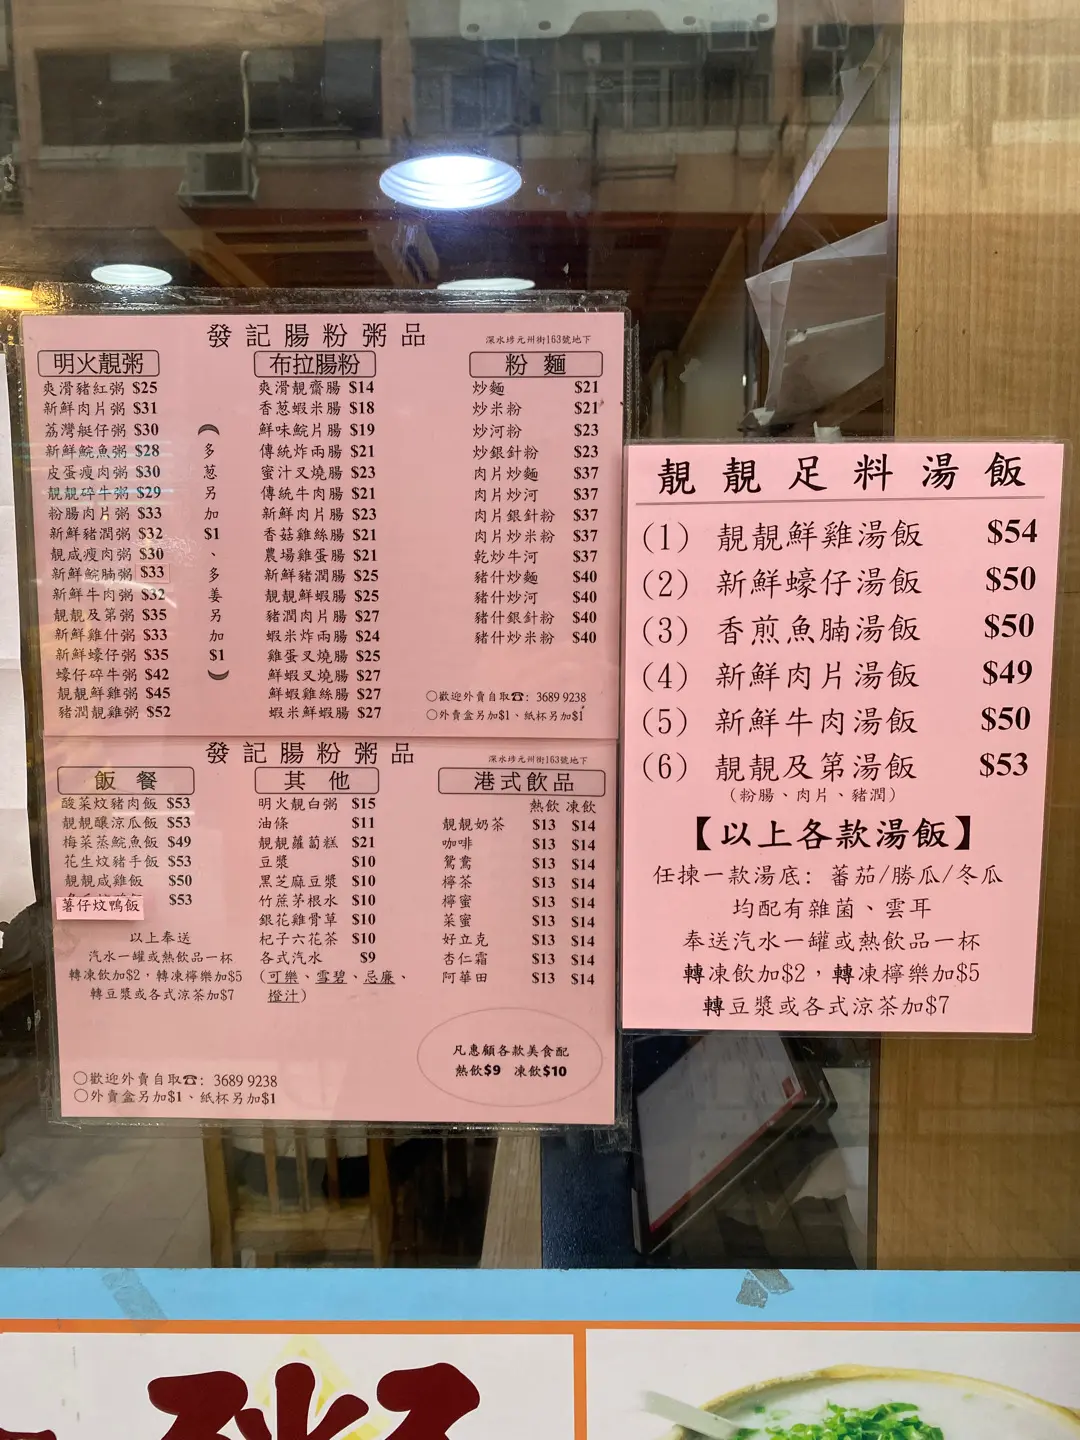 發記腸粉粥品
深水埗元州街163號地下
明火靚粥
爽滑豬紅粥 $25
新鮮肉片粥 $31
荔灣艇仔粥 $30
新鮮鯇魚粥 $28
皮蛋瘦肉粥 $30
靚靚碎牛粥 $29
粉腸肉片粥 $33
新鮮豬潤粥 $32
靚咸瘦肉粥 $30
新鮮鯇腩粥 $33
新鮮牛肉粥 $32
靚靚及第粥 $35
新鮮雞什粥 $33
新鮮蠔仔粥 $35
蠔仔碎牛粥 $42
靚靚鮮雞粥 $45
豬潤靚雞粥 $52
(多葱另加$1、多姜另加$1)
布拉腸粉
爽滑靚齋腸 $14
香葱蝦米腸 $18
鮮味鯇片腸 $19
傳統炸兩腸 $21
蜜汁叉燒腸 $23
傳統牛肉腸 $21
新鮮肉片腸 $23
香菇雞絲腸 $21
農場雞蛋腸 $21
新鮮豬潤腸 $25
靚靚鮮蝦腸 $25
豬潤肉片腸 $27
蝦米炸兩腸 $24
雞蛋叉燒腸 $25
鮮蝦叉燒腸 $27
鮮蝦雞絲腸 $27
蝦米鮮蝦腸 $27
粉麵
炒麵 $21
炒米粉 $21
炒河粉 $23
炒銀針粉 $23
肉片炒麵 $37
肉片炒河 $37
肉片銀針粉 $37
肉片炒米粉 $37
乾炒牛河 $37
豬什炒麵 $40
豬什炒河 $40
豬什銀針粉 $40
豬什炒米粉 $40
○歡迎外賣自取☎: 3689 9238
○外賣盒另加$1、紙杯另加$1
發記腸粉粥品
深水埗元州街163號地下
飯餐
酸菜炆豬肉飯 $53
靚靚釀涼瓜飯 $53
梅菜蒸鯇魚飯 $49
花生炆豬手飯 $53
靚靚咸雞飯 $50
薯仔炆鴨飯 $53
以上奉送
汽水一罐或熱飲品一杯
轉凍飲加$2，轉凍檸樂加$5
轉豆漿或各式涼茶加$7
○歡迎外賣自取☎: 3689 9238
○外賣盒另加$1、紙杯另加$1
其他
明火靚白粥 $15
油條 $11
靚靚蘿蔔糕 $21
豆漿 $10
黑芝麻豆漿 $10
竹蔗茅根水 $10
銀花雞骨草 $10
杞子六花茶 $10
各式汽水 $9
(可樂、雪碧、忌廉、
橙汁)
港式飲品
熱飲 凍飲
靚靚奶茶 $13 $14
咖啡 $13 $14
鴛鴦 $13 $14
檸茶 $13 $14
檸蜜 $13 $14
菜蜜 $13 $14
好立克 $13 $14
杏仁霜 $13 $14
阿華田 $13 $14
凡惠顧各款美食配
熱飲$9 凍飲$10
靚靚足料湯飯
(1) 靚靚鮮雞湯飯 $54
(2) 新鮮蠔仔湯飯 $50
(3) 香煎魚腩湯飯 $50
(4) 新鮮肉片湯飯 $49
(5) 新鮮牛肉湯飯 $50
(6) 靚靚及第湯飯 $53
(粉腸、肉片、豬潤)
【以上各款湯飯】
任揀一款湯底: 蕃茄/勝瓜/冬瓜
均配有雜菌、雲耳
奉送汽水一罐或熱飲品一杯
轉凍飲加$2，轉凍檸樂加$5
轉豆漿或各式涼茶加$7
粥